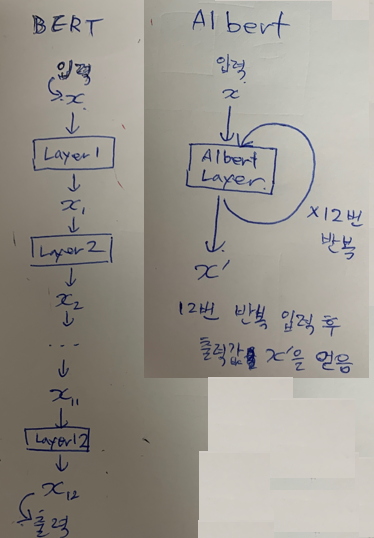 BERT
입력
x
Layer1
x₁
Layer2
x₂
...
x₁₁
Layer12
x₁₂
출력
Albert
입력
x
Albert
Layer.
×12번
반복
x'
12번 반복 입력 후
출력값 x'을 얻음